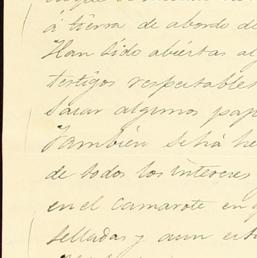 á tierra de abordo de
Han sido abiertas al
testigos respetables
sacar algunos pap
También se há he
de todos los intereses
en el camarote en q
selladas y aun est